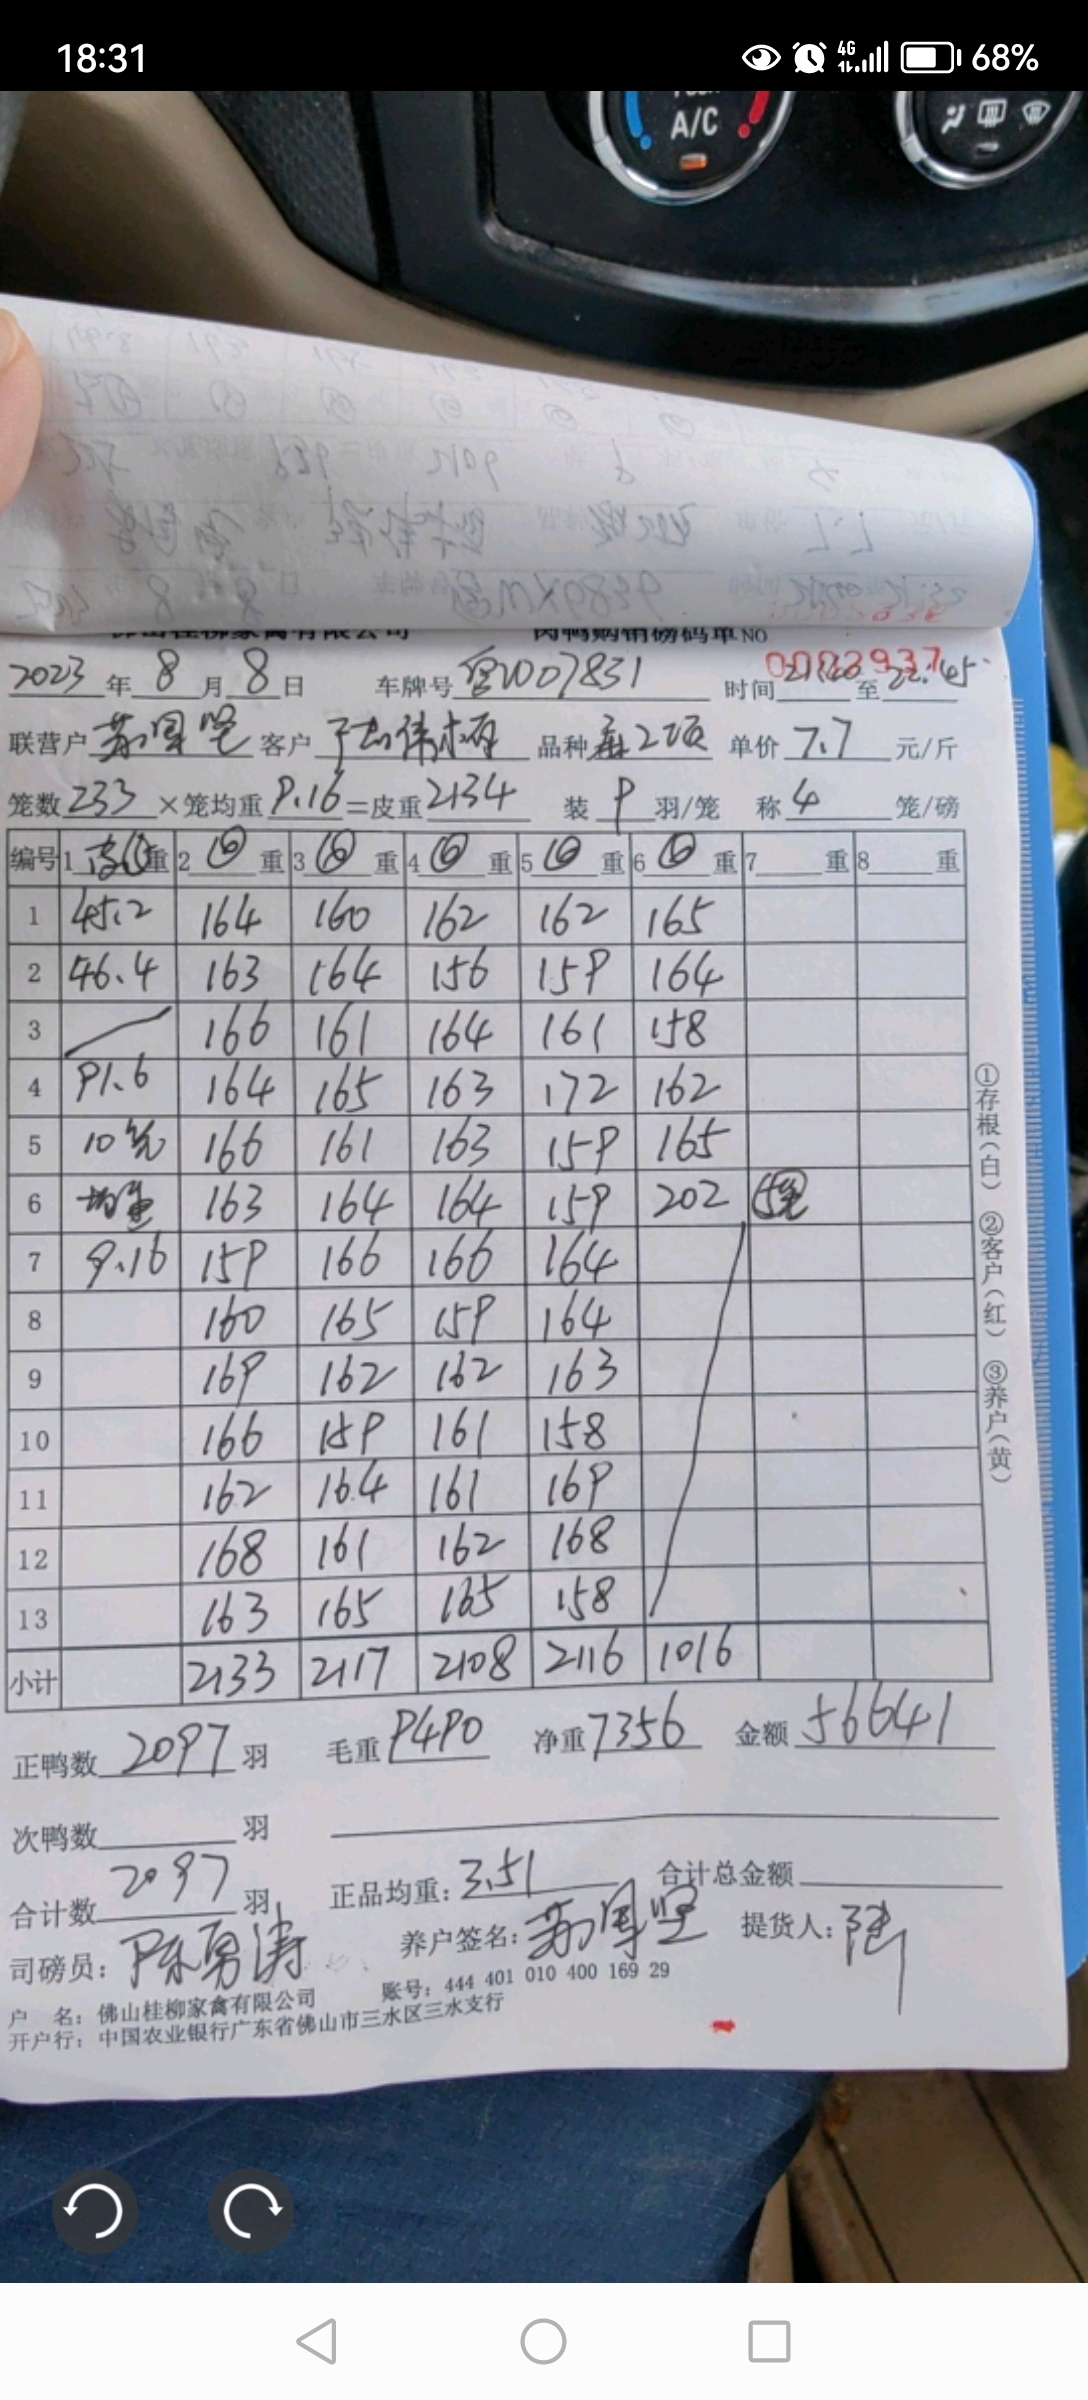 18:31 4G 68%
A/C
佛山桂柳家禽有限公司 肉鸭购销磅码单 NO 0002937
2023年8月8日 车牌号 007831 时间 至 22:45
联营户 苏国坚 客户 品种 麻2项 单价 7.7 元/斤
笼数 233 ×笼均重 9.16 =皮重 2134 装 9 羽/笼 称 4 笼/磅
编号 1 皮 重 2 重 3 重 4 重 5 重 6 重 7 重 8 重
1 45.2 164 160 162 162 165
2 46.4 163 164 156 159 164
3 166 161 164 161 158
4 91.6 164 165 163 172 162
5 10笼 166 161 163 159 165
6 均重 163 164 164 159 202 5笼
7 9.16 159 166 166 164
8 160 165 159 164
9 169 162 162 163
10 166 159 161 158
11 162 164 161 169
12 168 161 162 168
13 163 165 165 158
小计 2133 2117 2108 2116 1016
①存根(白) ②客户(红) ③养户(黄)
正鸭数 2097 羽 毛重 9490 净重 7356 金额 56641
次鸭数 羽
合计数 2097 羽 正品均重: 3.51 合计总金额
司磅员: 陈勇涛 养户签名: 苏国坚 提货人: 陆
户 名: 佛山桂柳家禽有限公司 账号: 444 401 010 400 169 29
开户行: 中国农业银行广东省佛山市三水区三水支行